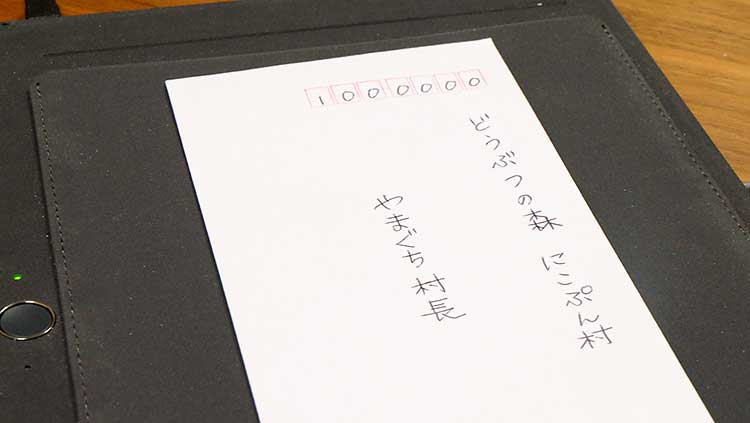 1000000
どうぶつの森 にこぷん村
やまぐち村長